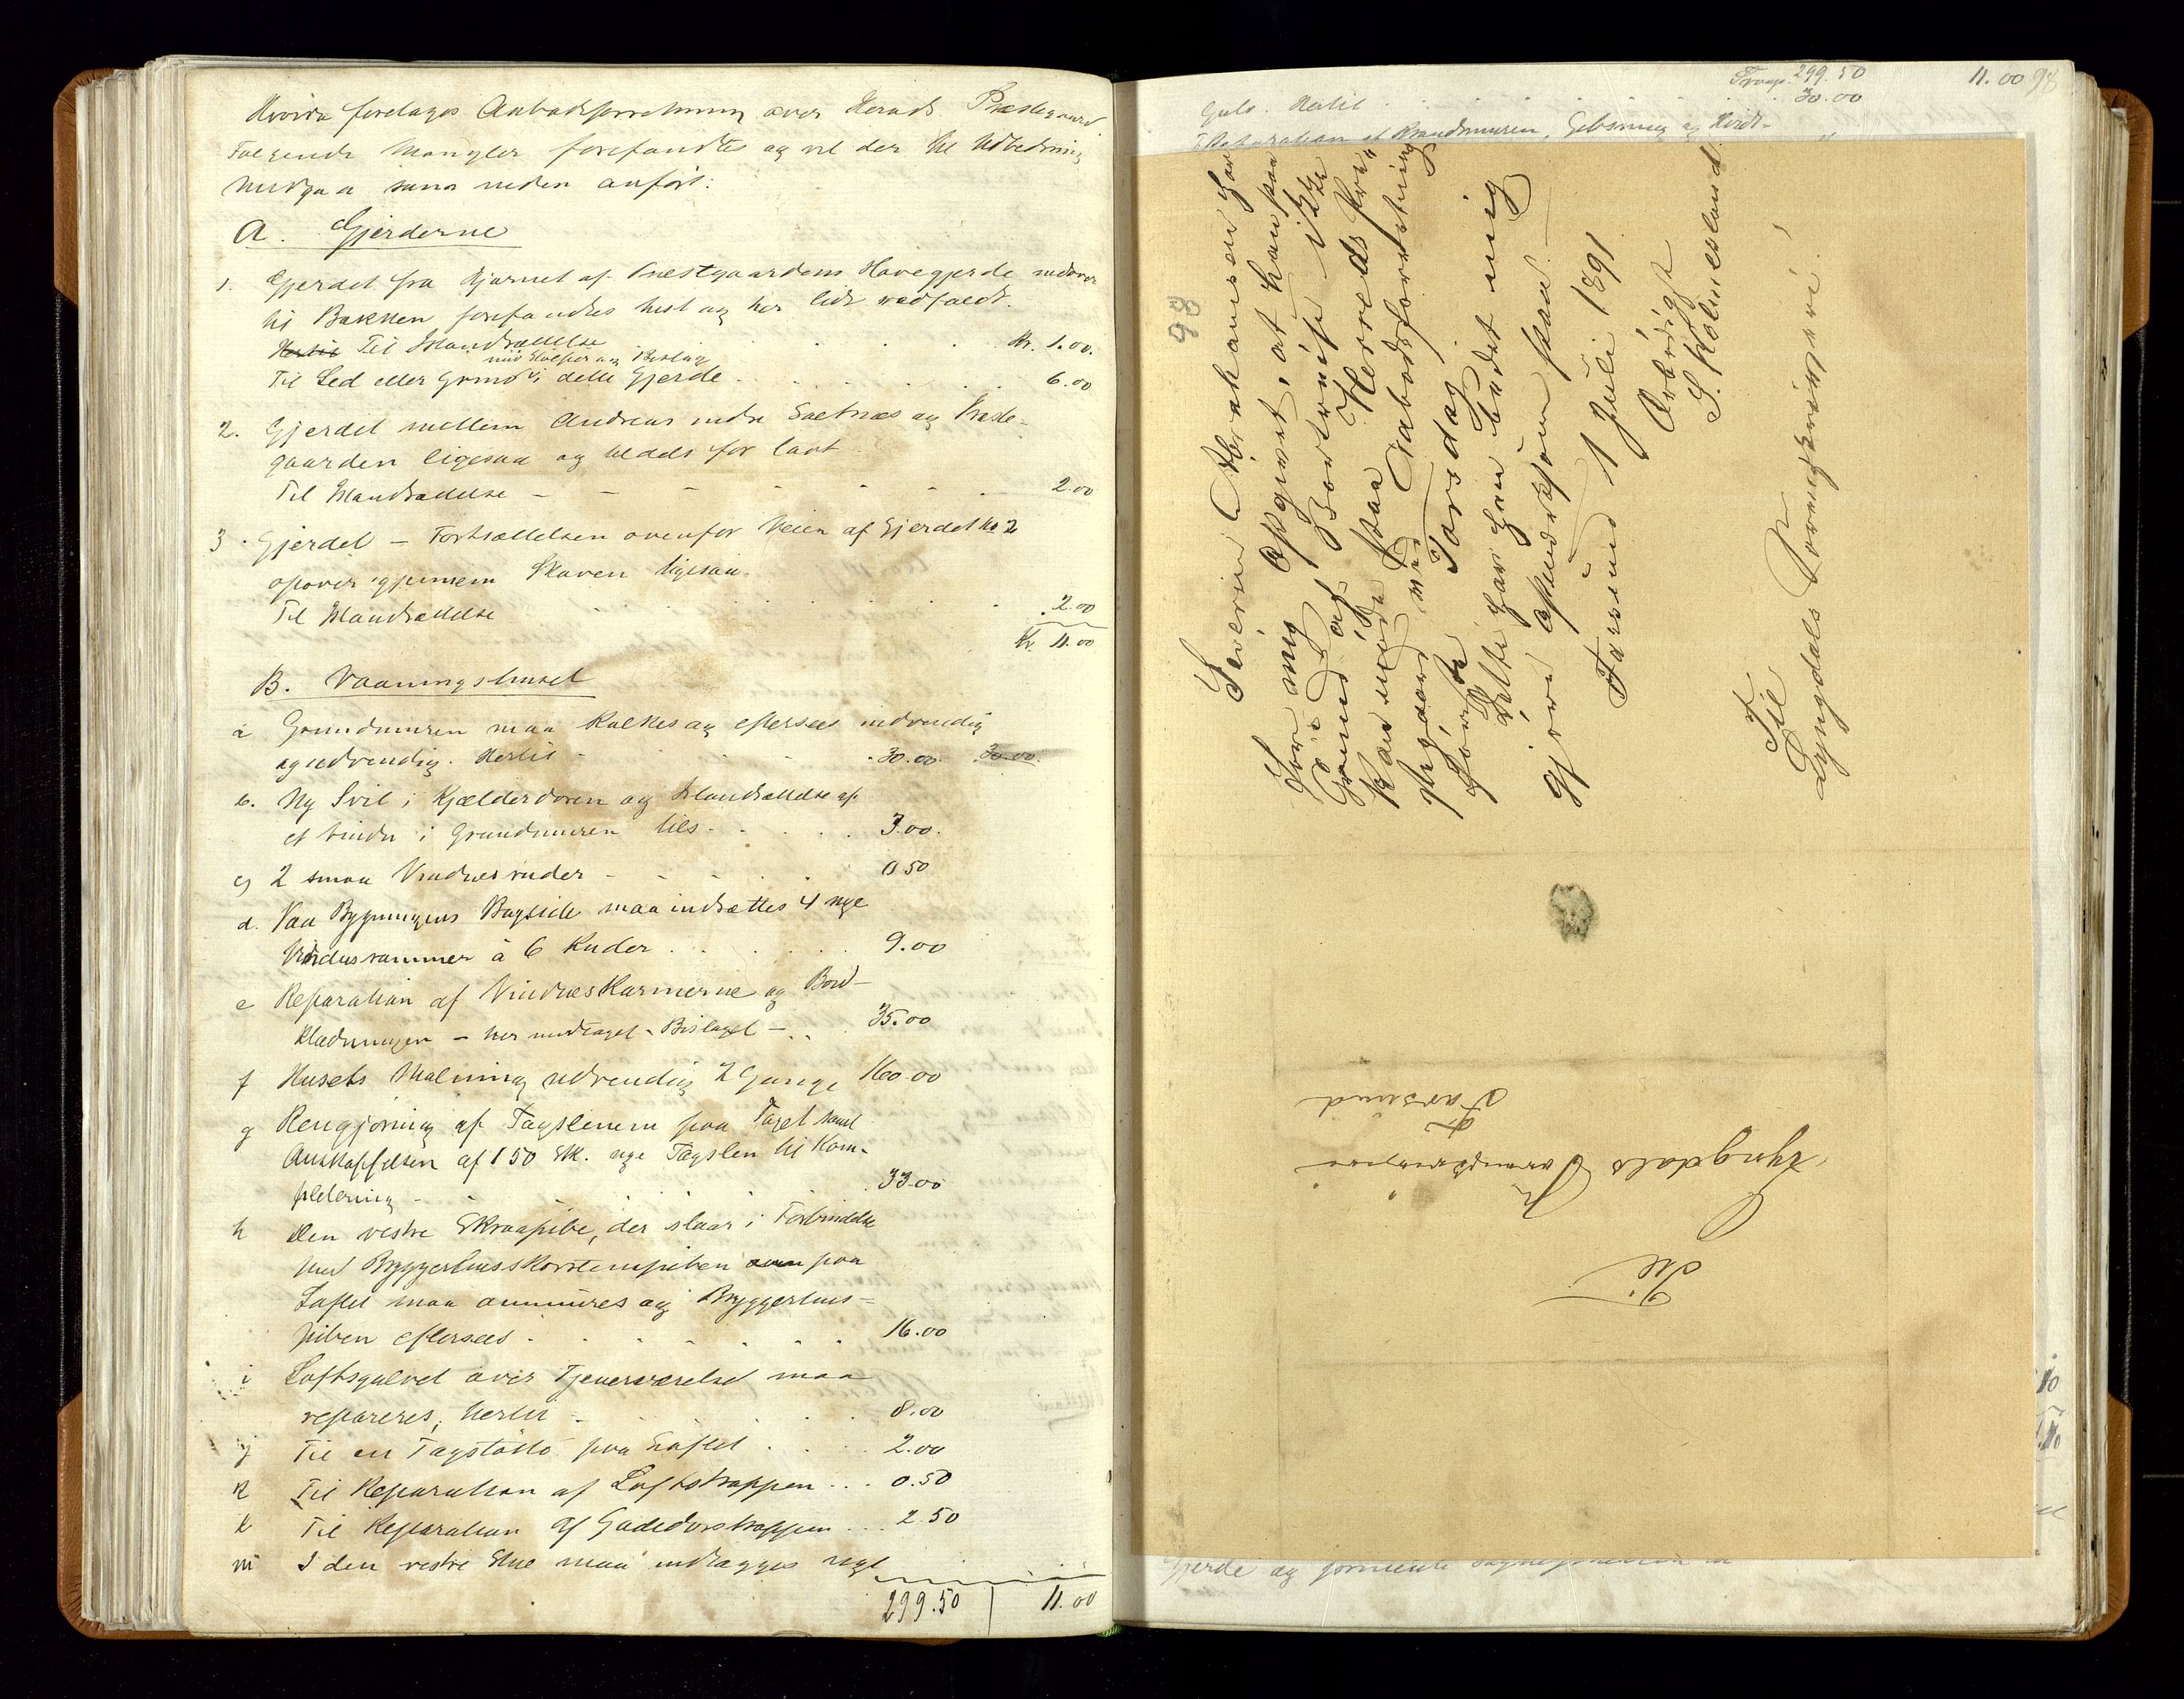 Hvorda foretages Aabodsforretning over Herads Præstegaard.
Følgende Mangler forefandtes og vil der til Udbedring
medgaa som neden anført:
A. Gjerderne
1. Gjerdet fra Hjørnet af Præstgaardens Havegjerde nedover
til Bakken forefandtes hist og her lidt nedfaldt.
Til Istandsættelse . . . . Kr. 1.00.
med Stolper og Beslag
Til Led eller Grind i dette Gjerde . . . . 6.00
2. Gjerdet mellem Andreas indre Sætnæs og Præste-
gaarden ligesaa og tildels for lavt
Til Istandsættelse - - - - - 2.00
3. Gjerdet - Fortsættelsen ovenfor Veien af Gjerdet No 2
opover igjennem Skoven ligesaa.
Til Istandsættelse . . . . 2.00
Kr. 11.00
B. Vaaningshuset
a Grundmuren maa kalkes og eftersees indvendig
og udvendig. Hertil - . . 30.00. 30.00.
b. Ny Svil i Kjælderdøren og Istandsættelse af
et Vindu i Grundmuren til . . . 3.00.
c) 2 smaa Vinduesruder - - - . 0.50
d. Paa Bygningens Bagside maa indsættes 4 nye
Vinduesrammer à 6 Ruder . . . . 9.00
e Reparation af Vindueskarmerne og Bord-
klædningen - her medtaget Bislaget - . . 35.00
f Husets Malning udvendig 2 Gange 160.00
g Rengjøring af Tagstenene paa Taget samt
Anskaffelsen af 150 Stk. nye Tagsten til Kom-
pletering - - . . . 33.00
h Den vestre Skraapibe, der staar i Forbindelse
med Bryggerhusskorstenspiben paa
Loftet maa ommures og Bryggerhus-
piben eftersees . . . . 16.00
i Loftsgulvet over Tjenerværelset maa
repareres, hertil - . . . 8.00
j Til en Tagstøtte paa Loftet . . . 2.00
k Til Reparation af Loftstrappen . . . 0.50
l Til Reparation af Gadedørstrappen . . . 2.50
m I den vestre Stue maa indlægges nyt
299.50 | 11.00
Transp. 299.50 11.00 98
Gulv. Hertil . . . . 30.00
Reparation af Brandmuren, Gibsning og Hvidt-
98
Severin Abrahamsen har
for mig opgivet, at han paa
Grund af Bortreise ikke
kan møde paa Herreds Præ-
stegaard ved Aabodsforretning
førstk. Torsdag.
Dette har han bedet mig
gjøre Anmeldelse om
Farsund 1 Juli 1891
Ærbødigst
S. Kolnesland
Til
Lyngdals Sorenskriveri!
Til
Lyngdals Sorenskriveri
Farsund
Gjerde og